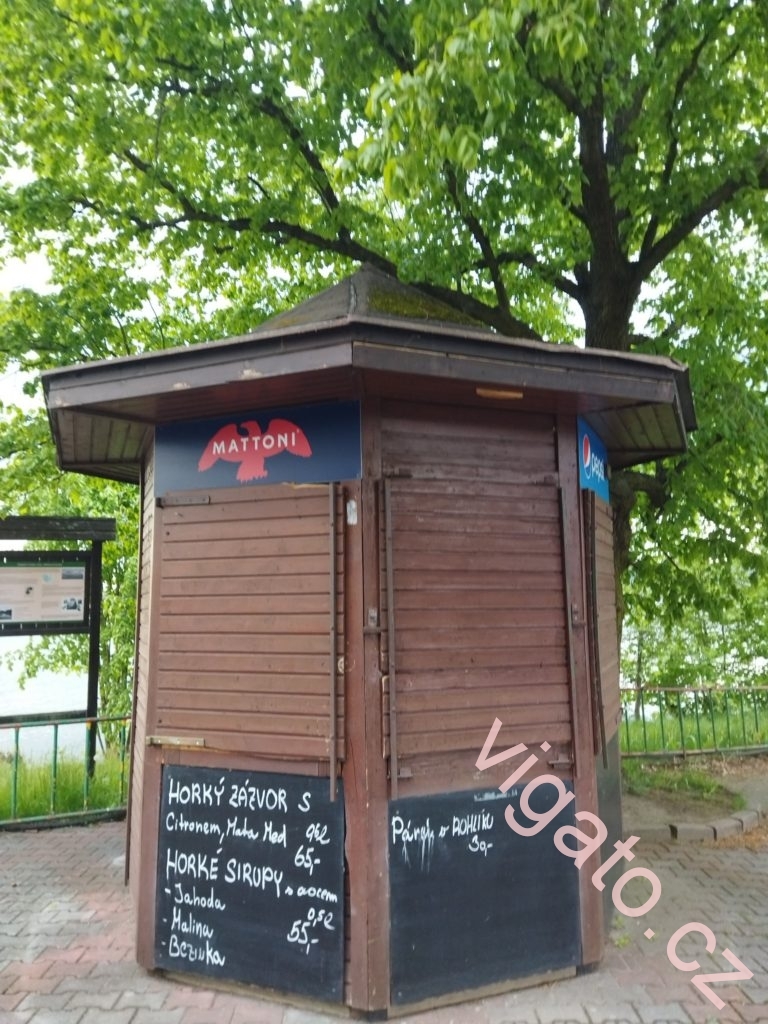 MATTONI
pepsi
HORKÝ ZÁZVOR S
Citronem, Mata Med
65,-
HORKÉ SIRUPY s ovocem
0,5l
- Jahoda
- Malina
55,-
- Bezinka
Párek v ROHLÍKU
30,-
vigato.cz